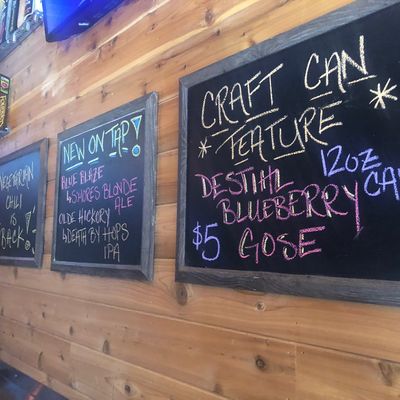 VEGETARIAN
CHILI
IS
BACK!
NEW ON TAP!
BLUE BLAZE
4 SHORES BLONDE
ALE
OLDE HICKORY
DEATH BY HOPS
IPA
CRAFT CAN
* FEATURE *
DESTIHL
BLUEBERRY
GOSE
12OZ
CAN
$5